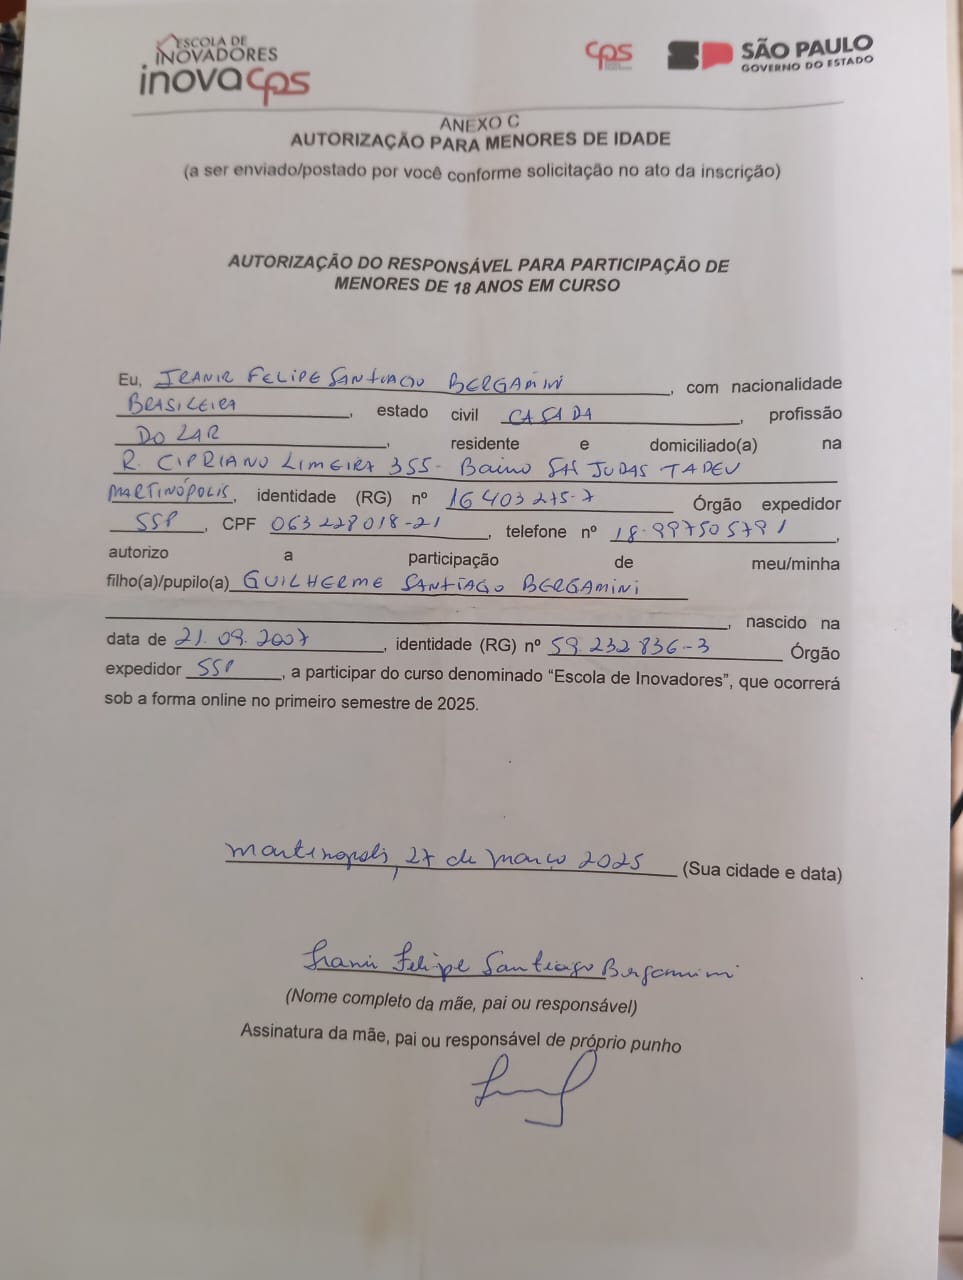 ESCOLA DE
INOVADORES
inovacps
cps
SÃO PAULO
GOVERNO DO ESTADO
ANEXO C
AUTORIZAÇÃO PARA MENORES DE IDADE
(a ser enviado/postado por você conforme solicitação no ato da inscrição)
AUTORIZAÇÃO DO RESPONSÁVEL PARA PARTICIPAÇÃO DE
MENORES DE 18 ANOS EM CURSO
Eu, IRANIR FELIPE SANTIAGO BERGAMINI, com nacionalidade
BRASILEIRA, estado civil CASADA, profissão
DO LAR, residente e domiciliado(a) na
R. CIPRIANO LIMEIRA 355- Bairro SÃO JUDAS TADEU
MARTINÓPOLIS, identidade (RG) nº 16 403 275-7 Órgão expedidor
SSP, CPF 063 228 018-21, telefone nº 18-997505791,
autorizo a participação de meu/minha
filho(a)/pupilo(a) GUILHERME SANTIAGO BERGAMINI
, nascido na
data de 21.09.2007, identidade (RG) nº 59.232 836-3 Órgão
expedidor SSP, a participar do curso denominado “Escola de Inovadores”, que ocorrerá
sob a forma online no primeiro semestre de 2025.
Martinopolis, 27 de março 2025 (Sua cidade e data)
Iranir Felipe Santiago Bergamini
(Nome completo da mãe, pai ou responsável)
Assinatura da mãe, pai ou responsável de próprio punho